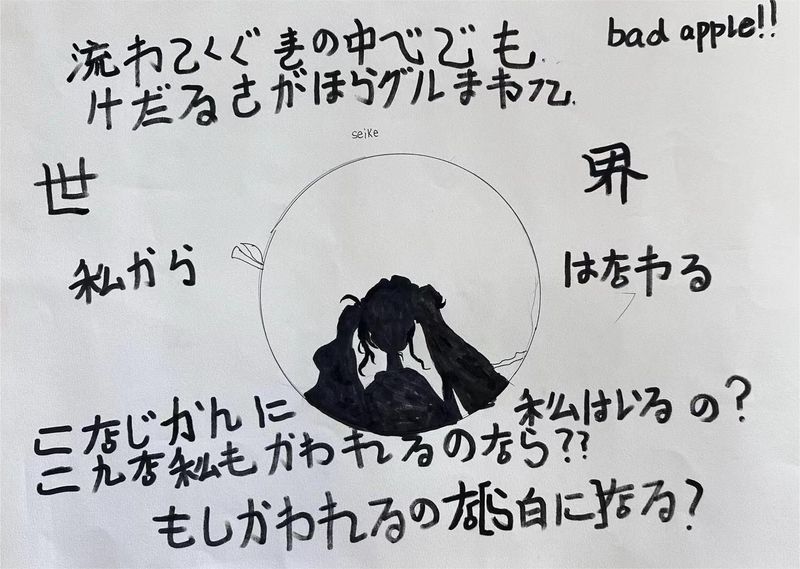 bad apple!!
流わてくぐきの中べでも
けだるさがほらグルまわって
seike
世 界
私から は店わる
こなじかんに 私はいるの?
こんな私もかわれるのなら??
もしかわれるのな[ら白に]なる?